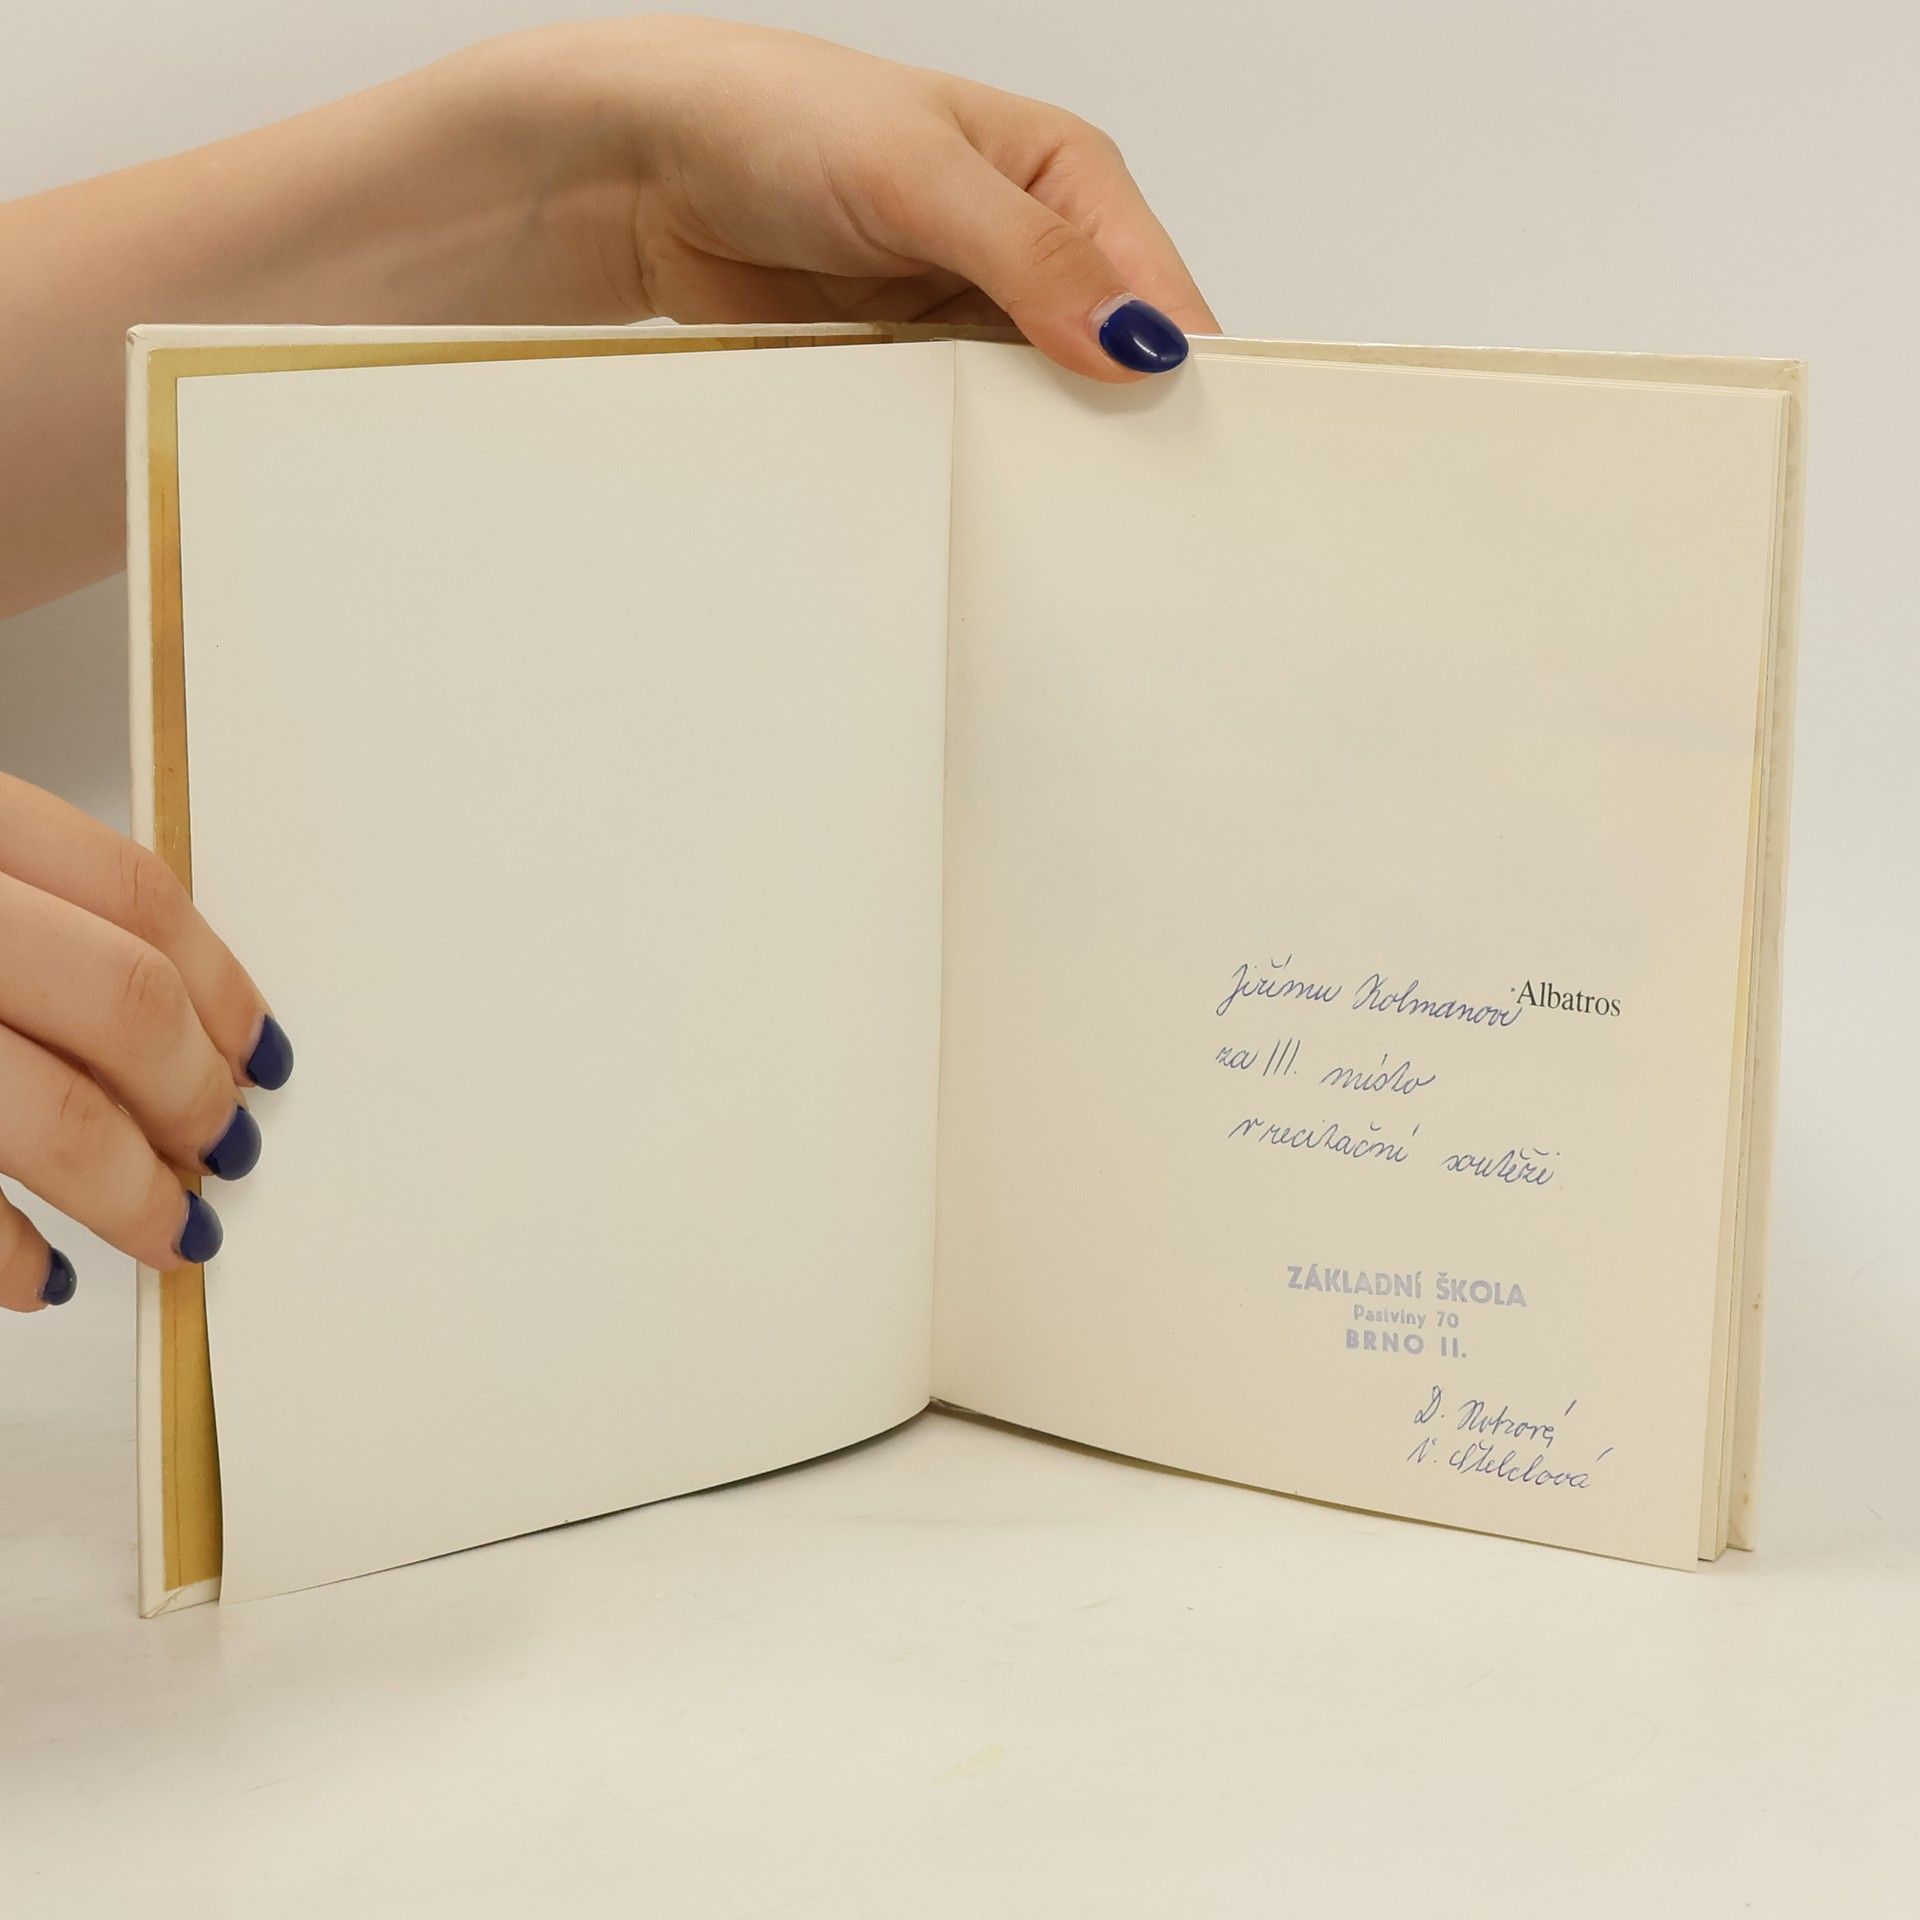 Albatros
Jiřímu Kolmanovi
za III. místo
v recitační soutěži.
ZÁKLADNÍ ŠKOLA
Pastviny 70
BRNO II.
D.
V.